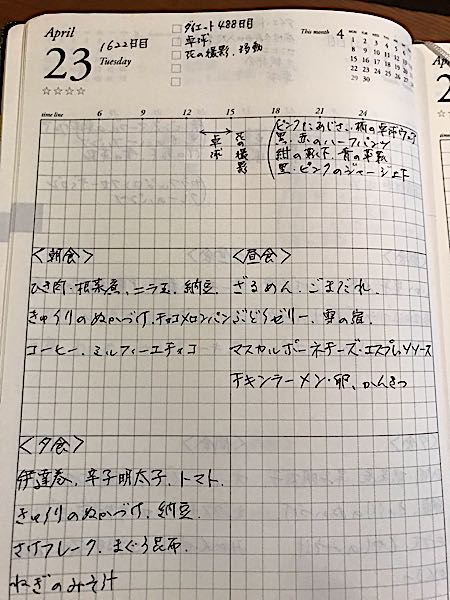 April
23
Tuesday
1622日目
ダイエット488日目
卓球
花の撮影、移動
This month 4
MON TUE WED THU FRI SAT SUN
1 2 3 4 5 6 7
8 9 10 11 12 13 14
15 16 17 18 19 20 21
22 23 24 25 26 27 28
29 30
☆☆☆☆
time line 6 9 12 15 18 21 24 time line
卓球
花の撮影
ピンクにあじさい柄の卓球ウェア
黒・赤のハーフパンツ
紺の靴下、青の運動靴
黒・ピンクのジャージ上下
<朝食>
ひき肉・根菜煮、ニラ玉、納豆、
きゅうりのぬかづけ、チョコメロンパン
コーヒー、ミルフィーユチョコ
<昼食>
ざるめん、ごまだれ、
ぶどうゼリー、雪の宿、
マスカルポーネチーズ・エスプレッソソース
チキンラーメン・卵、かんきつ
<夕食>
伊達巻、辛子明太子、トマト、
きゅうりのぬかづけ、納豆、
さけフレーク、まぐろ昆布、
ねぎのみそ汁